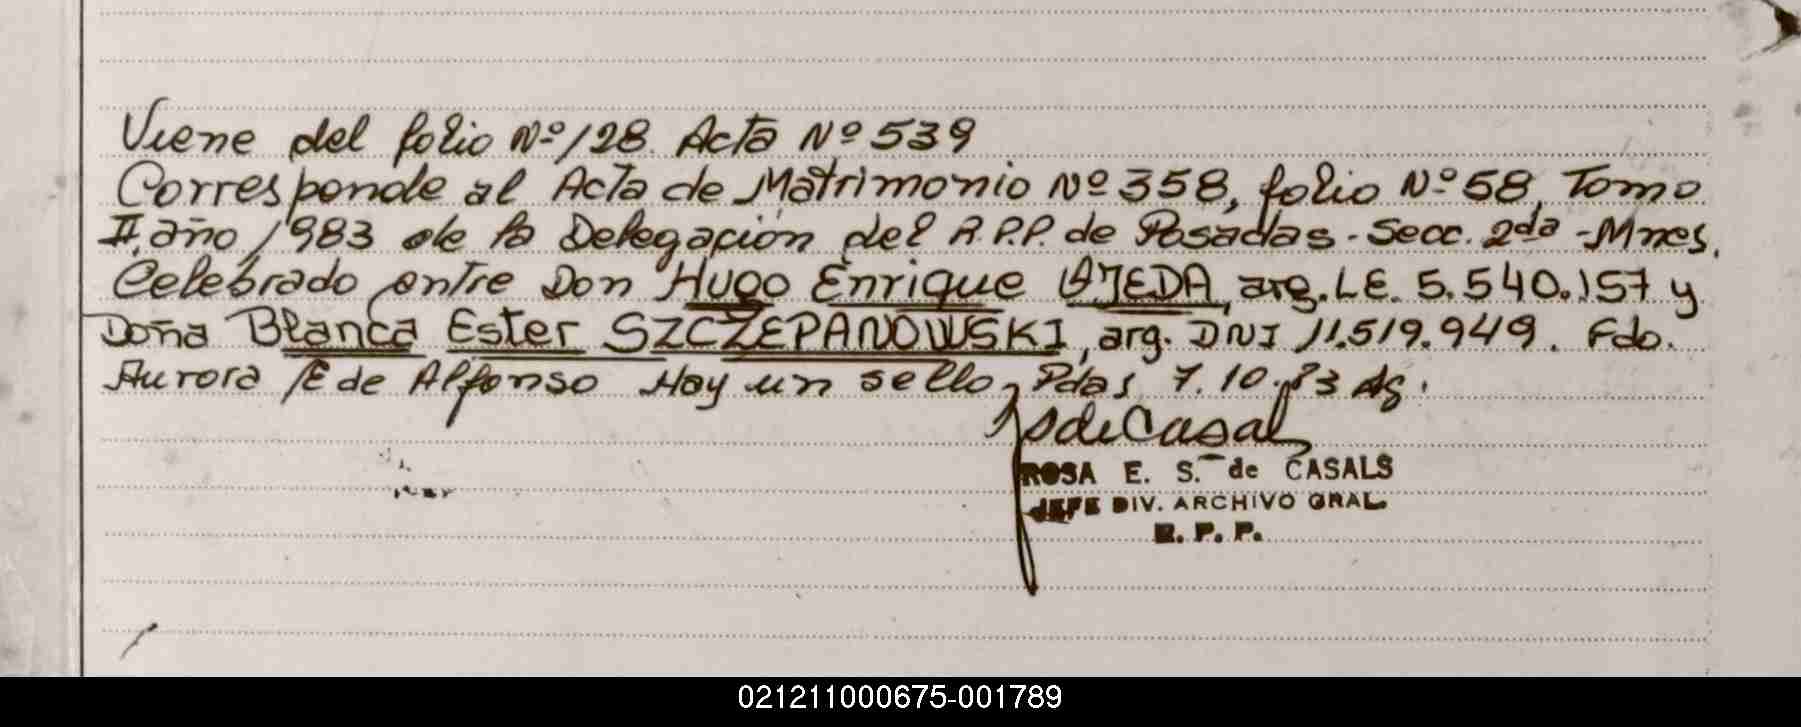 Viene del folio Nº 128. Acta Nº 539
Corresponde al Acta de Matrimonio Nº 358, folio Nº 58, Tomo
II, año 1983 de la Delegación del R.P.P. de Posadas - Secc. 2da - Mnes.
Celebrado entre Don Hugo Enrique OJEDA, arg. L.E. 5.540.157 y
Doña Blanca Ester SZCZEPANOWSKI, arg. DNI 11.519.949. Fdo.
Aurora E de Alfonso Hay un sello, Pdas, 7.10.83
SdeCasal
ROSA E. S. de CASALS
JEFE DIV. ARCHIVO GRAL.
R. P. P.
021211000675-001789